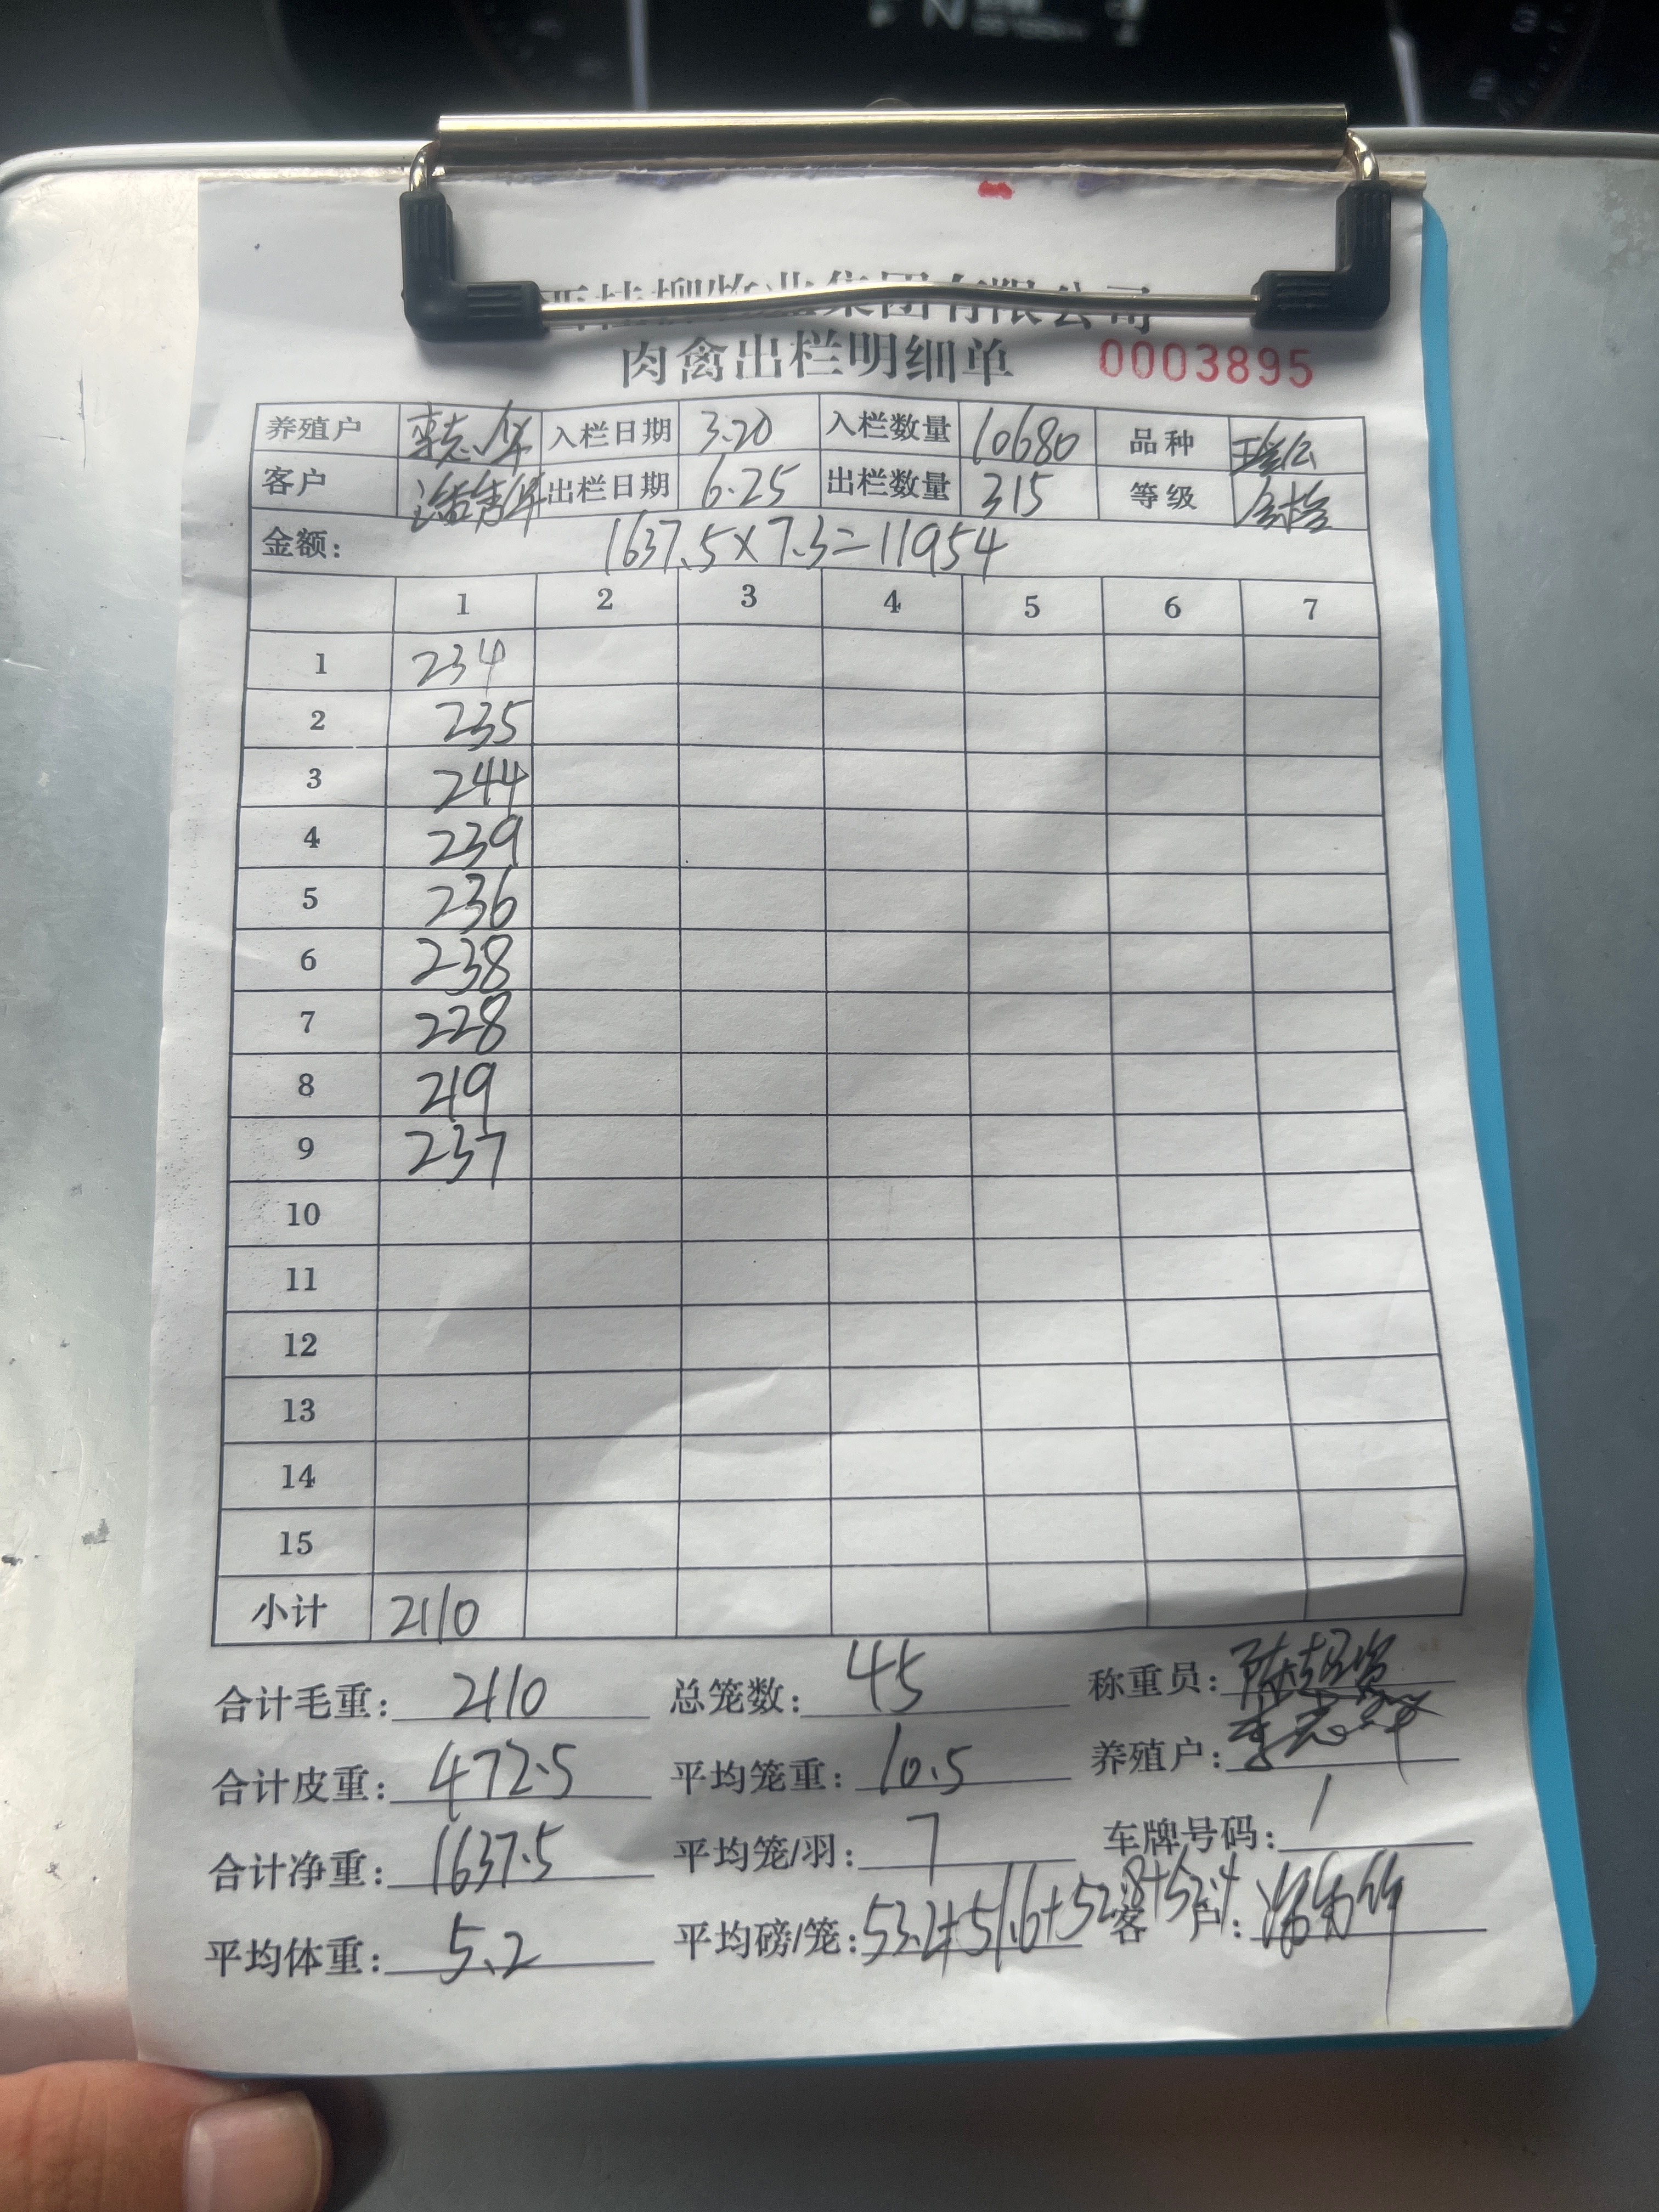 集团有限公司
肉禽出栏明细单 0003895
养殖户 李志华 入栏日期 3.20 入栏数量 10680 品种
客户 出栏日期 6.25 出栏数量 315 等级
金额: 1637.5×7.3=11954
1 2 3 4 5 6 7
1 234
2 235
3 244
4 239
5 236
6 238
7 228
8 219
9 237
10
11
12
13
14
15
小计 2110
合计毛重: 2110 总笼数: 45 称重员:
合计皮重: 472.5 平均笼重: 10.5 养殖户: 李志华
合计净重: 1637.5 平均笼/羽: 7 车牌号码: /
平均体重: 5.2 平均磅/笼: 53.2+51.6+52.8+52.4 客 户: